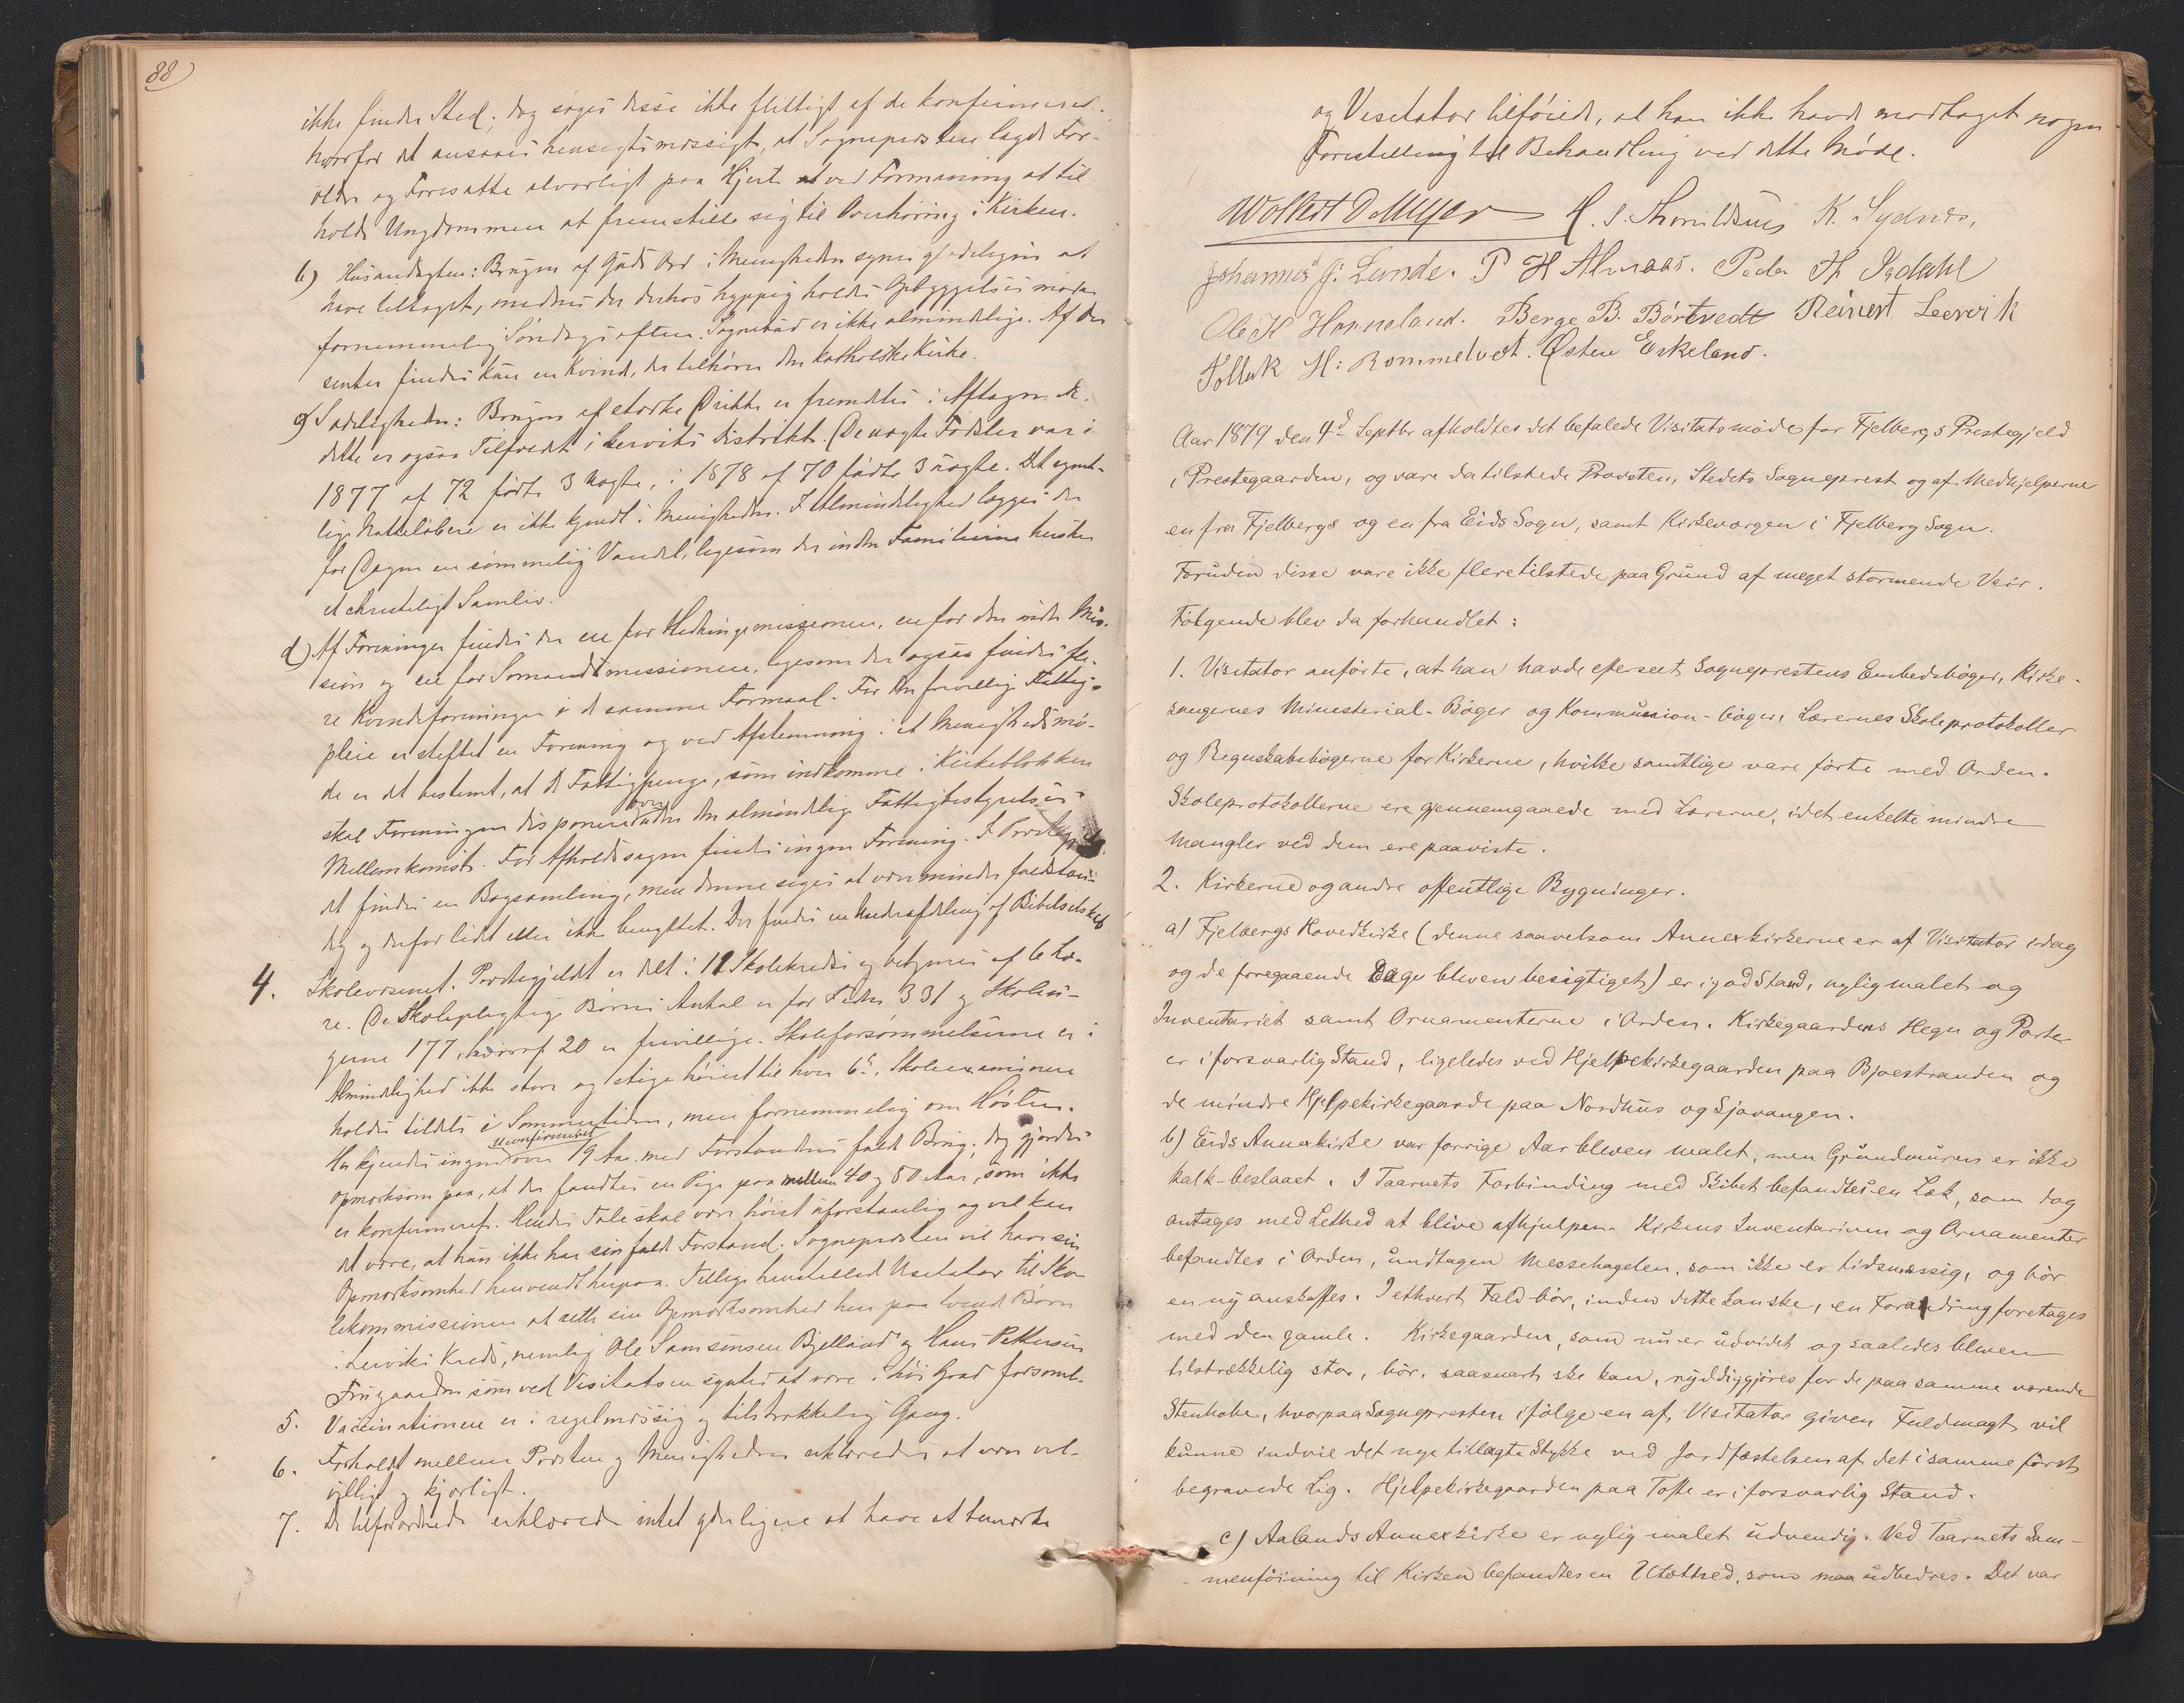 88)
ikke finder Sted; dog søges disse ikke flittigt af de konfirmerede.
hvorfor det ansaaes hensigtsmæssigt, at Sognepresten lagde For-
ældre og Foresatte alvorligt paa Hjerte at ved Formaning at til
holde Ungdommen at fremstille sig til Overhøring i Kirken.
b) Husandagten: Brugen af Guds Ord i Menigheden synes glædeligen at
have tiltaget, medens der derhos hyppig holdes Opbyggelsesmøder
fornemmelig Søndags aften. Sognebud er ikke almindelige. Af Dis
senter findes kun en Kvinde, der tilhører den katholske Kirke.
c) Sædeligheden: Brugen af stærke Drikke er fremdeles i Aftagende.
dette er ogsaa Tilfældet i Lerviks Distrikt. De uægte Fødsler var i
1877 af 72 fødte 3 uægte, i 1878 af 70 fødte 3 uægte. Det egent-
lige Natteløberi er ikke kjendt i Menigheden. I Almindelighed lægges der
for Dagen en sømmelig Vandel, ligesom der inden Familierne hersker
et christeligt Samliv.
d) Af Foreninger findes der en for Hedningemissionen, en for den indre Mis-
sion og en for Sømandsmissionen, ligesom der ogsaa findes fle-
re Kvindeforeninger i det samme Formaal. For den frivillige Fattig-
pleie er stiftet en Forening og ved Afstemning i et Menighedsmø-
de er det bestemt, at de Fattigpenge, som indkomme i Kirkeblokken
skal Foreningen disponere over uden den almindelige Fattigbestyrelses
Mellemkomst. For Afholdssagen findes ingen Forening. I Prestegjel-
det findes en Bogsamling, men denne siges at være mindre fuldstæn-
dig og derfor lidt eller ikke benyttet. Der findes en Underafdeling af Bibelselskab
4. Skolevæsenet. Prestegjeldet er delt i 12 Skolekredse og betjenes af 6 Læ-
re. De Skolepligtige Børns Antal er for Tiden 331 og Skolen-
gerne 177, hvoraf 20 er frivillige. Skoleforsømmelserne er i
Almindelighed ikke store og stige høiest til hver 6te. Skoleexaminerne
holdes tildels i Sommertiden, men fornemmelig om Høsten.
Her kjendes ingen ukonfirmeret over 19 Aar med Forstandens fulde Brug; dog gjordes
opmærksom paa, at der fandtes en Pige paa mellem 40 og 50 Aar, som ikke
er konfirmeret. Hendes Tale skal være høist uforstaaelig og vel kan
det være, at hun ikke har sin fulde Forstand. Sognepresten vil have sin
Opmærksomhed henvendt herpaa. Tillige henstillede Visitator til Sko-
lekommissionen at rette sin Opmærksomhed hen paa tvende Børn
i Lerviks Kreds, nemlig Ole Samsonsen Bjelland og Hans Pettersen
Frugaarden som ved Visitatsen syntes at være i høi Grad forsømt.
5. Vaccinationen er i regelmæssig og tilstrækkelig Gang.
6. Forholdet mellem Presten og Menigheden erklæredes at være vel-
villigt og kjærligt.
7. De tilforordnede erklærede intet yderligere at have at bemærke
og Visitator tilføiede, at han ikke havde modtaget nogen
Forestilling til Behandling ved dette Møde.
Wollert D Meyer H. S. Thorvildsen K. Sydnes,
Johannes J. Lunde. P H Almaas. Peder Th Ifdahl
Ole H Hanneland. Berge B. Børtvedt Reinert Leervik
Tollak H: Rommetvet. Østen Eskeland.
Aar 1879 den 4de Septbr afholdtes det befalede Visitatsmøde for Fjelbergs Prestegjeld
i Prestegaarden, og vare da tilstede Provsten, Stedets Sogneprest og af Medhjelperne
en fra Fjelbergs og en fra Eids Sogn, samt Kirkeværgen i Fjelberg Sogn.
Foruden disse vare ikke flere tilstede paa Grund af meget stormende Veir.
Følgende blev da forhandlet:
1. Visitator anførte, at han havde efterseet Sogneprestens Embedsbøger, Kirke-
sangernes Ministerial-Bøger og Kommunion-bøger, Lærernes Skoleprotokoller
og Regnskabsbøgerne for Kirkerne, hvilke samtlige vare førte med Orden.
Skoleprotokollerne ere gjennemgaaede med Lærerne, idet enkelte mindre
Mangler ved dem ere paaviste.
2. Kirkerne og andre offentlige Bygninger.
a) Fjelbergs Hovedkirke (denne saavelsom Annexkirkerne er af Visitator idag
og de foregaaende Dage bleven besigtiget) er i god Stand, nylig malet og
Inventariet samt Ornamenterne i Orden. Kirkegaardens Hegn og Porte
er i forsvarlig Stand, ligeledes ved Hjelpekirkegaarden paa Bjoestranden og
de mindre Hjelpekirkegaarde paa Nordhus og Sjovangen.
b) Eids Annexkirke var forrige Aar bleven malet, men Grundmuren er ikke
kalk-beslaaet. I Taarnets Forbinding med Skibet befandtes en Læk, som dog
antages med Lethed at blive afhjulpen. Kirkens Inventarium og Ornamenter
befandtes i Orden, undtagen Messehagelen, som ikke er tidsmæssig, og bør
en ny anskaffes. I ethvert Fald bør, inden dette kan ske, en Forandring foretages
med den gamle. Kirkegaarden, som nu er udvidet og saaledes bleven
tilstrækkelig stor, bør, saasnart ske kan, ryddiggjøres for de paa samme værende
Stenhobe, hvorpaa Sognepresten ifølge en af Visitator given Fuldmagt vil
kunne indvie det nye tillagte Stykke ved Jordfæstelsen af det i samme først
begravede Lig. Hjelpekirkegaarden paa Tofte er i forsvarlig Stand.
c) Aalands Annexkirke er nylig malet udvendig. Ved Taarnets Sam-
menføining til Kirken befandtes en Utæthed, som maa udbedres. Det var